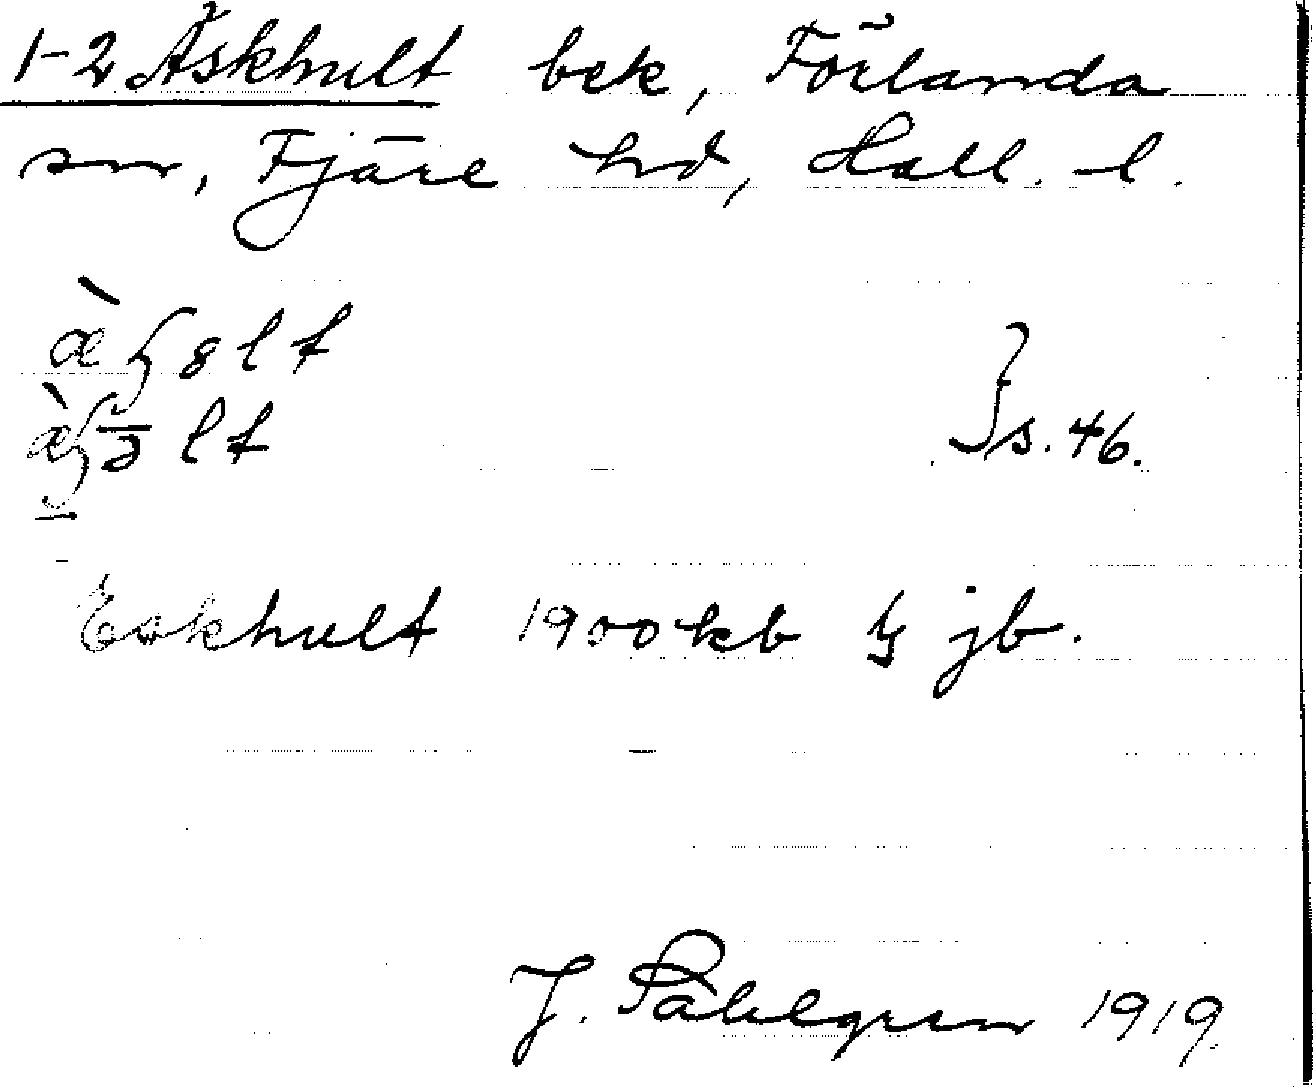 1-2 Äskhult bek, Förlanda
sn, Fjäre hd, Hall. l.
s. 46.
Eskhult 1900 kb & jb.
J. Sahlgren 1919